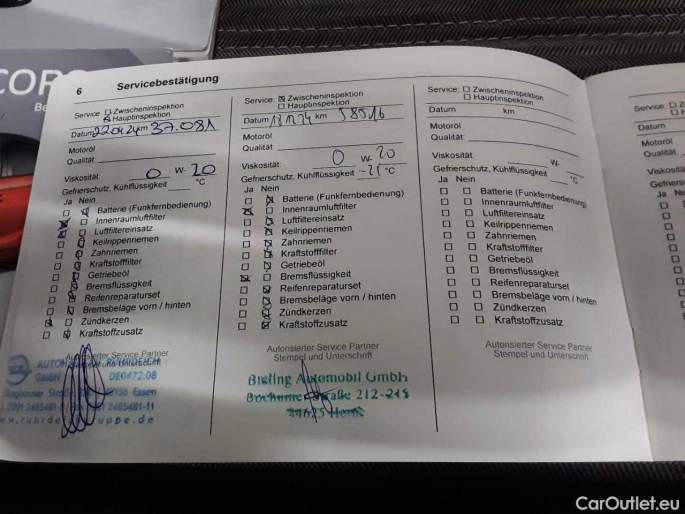 COR
6 Servicebestätigung
Service ☐ Zwischeninspektion
☒ Hauptinspektion
Datum 22.04.24 km 37.081
Motoröl
Qualität
Viskosität: 0 W- 20
Gefrierschutz, Kühlflüssigkeit °C
Ja Nein
Batterie (Funkfernbedienung)
Innenraumluftfilter
Luftfiltereinsatz
Keilrippenriemen
Zahnriemen
Kraftstofffilter
Getriebeöl
Bremsflüssigkeit
Reifenreparaturset
Bremsbeläge vorn / hinten
Zündkerzen
Kraftstoffzusatz
Autorisierter Service Partner
GmbH DE0472.08
Essen
Service ☒ Zwischeninspektion
☐ Hauptinspektion
Datum km 58916
Motoröl
Qualität
Viskosität: 0 W- 20
Gefrierschutz, Kühlflüssigkeit -25 °C
Ja Nein
Batterie (Funkfernbedienung)
Innenraumluftfilter
Luftfiltereinsatz
Keilrippenriemen
Zahnriemen
Kraftstofffilter
Getriebeöl
Bremsflüssigkeit
Reifenreparaturset
Bremsbeläge vorn / hinten
Zündkerzen
Kraftstoffzusatz
Autorisierter Service Partner
Stempel und Unterschrift
Automobil GmbH
Straße 212-218
Service: ☐ Zwischeninspektion
☐ Hauptinspektion
Datum km
Motoröl
Qualität
Viskosität: W-
Gefrierschutz, Kühlflüssigkeit °C
Ja Nein
Batterie (Funkfernbedienung)
Innenraumluftfilter
Luftfiltereinsatz
Keilrippenriemen
Zahnriemen
Kraftstofffilter
Getriebeöl
Bremsflüssigkeit
Reifenreparaturset
Bremsbeläge vorn / hinten
Zündkerzen
Kraftstoffzusatz
Autorisierter Service Partner
Stempel und Unterschrift
Service
Datum
Motoröl
Qualität
Viskosität:
Ja
CarOutlet.eu